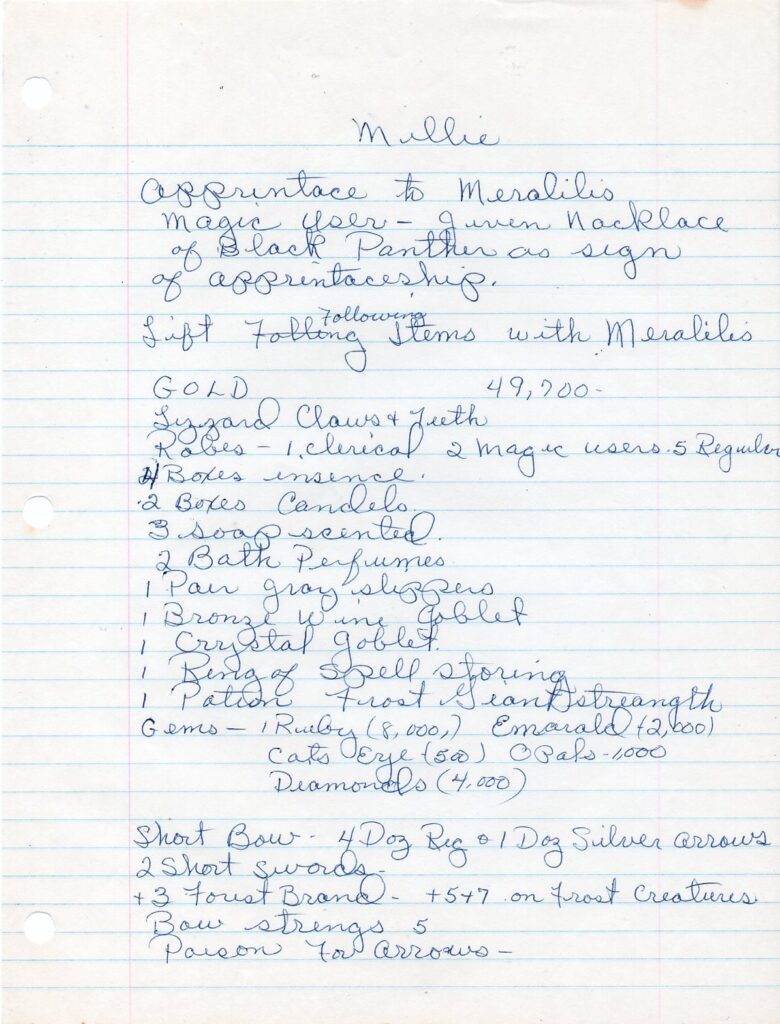 Millie
Apprintace to Meralilis
Magic User - Given Nacklace
of Black Panther as sign
of apprintaceship.
Following
Lift Items with Meralilis
GOLD 49,700-
Lizzard Claws & Teeth
Robes - 1. clerical 2 magic users. 5 Regular
4 Boxes insence.
2 Boxes Candels.
3 soap scented.
2 Bath Perfumes
1 Pair gray slippers
1 Bronze Wine Goblet
1 Crystal goblet.
1 Ring of Spell storing
1 Potion Frost Giant streangth
Gems - 1 Rueby (8,000,) Emarald (2,000)
Cats Eye (500) OPals - 1000
Diamonds (4,000)
Short Bow - 4 Doz Reg & 1 Doz Silver arrows
2 Short Swords -
+3 Brand - +5+7 on Frost Creatures
Bow strings 5
Poison For arrows -